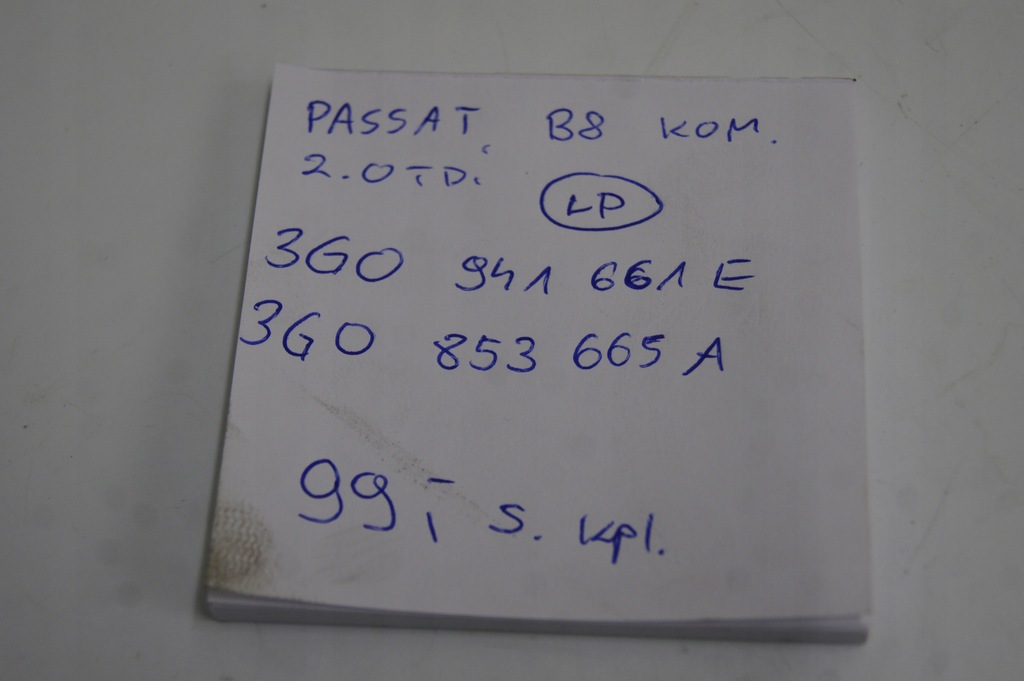 PASSAT B8 KOM.
2.0 TDi
LP
3G0 941 661 E
3G0 853 665 A
99,- s. kpl.